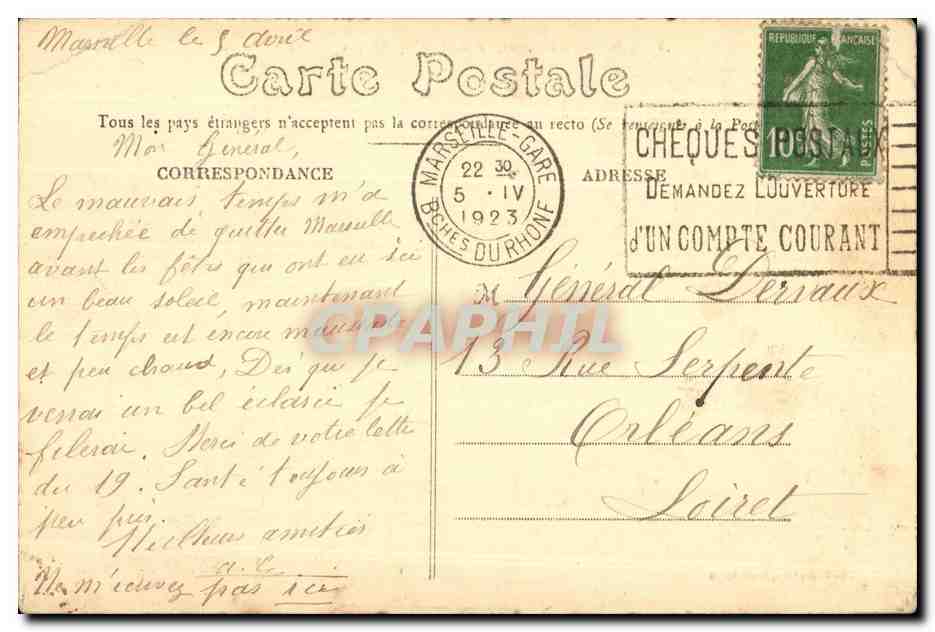 Marseille le 5 Avril
Carte Postale
RÉPUBLIQUE FRANÇAISE
10c
POSTES
Tous les pays étrangers n'acceptent pas la correspondance au recto (Se renseigner à la Poste
Mon Général,
CORRESPONDANCE
ADRESSE
MARSEILLE-GARE
22 30
5 · IV
1923
Bches DU RHONE
CHEQUES POSTAUX
DEMANDEZ L'OUVERTURE
d'UN COMPTE COURANT
Le mauvais temps m'a
empechée de quitter Marseille
avant les fêtes qui ont eu ici
un beau soleil, maintenant
le temps est encore maussade
et peu chaud, Dès que je
verrai un bel éclarcie je
filerai. Merci de votre lettre
du 19. Santé toujours à
peu près.
Meilleurs amitiés
a. C.
Ne m'écrivez pas ici
M Général Dervaux
13 Rue Serpente
Orléans
Loiret
CPAPHIL